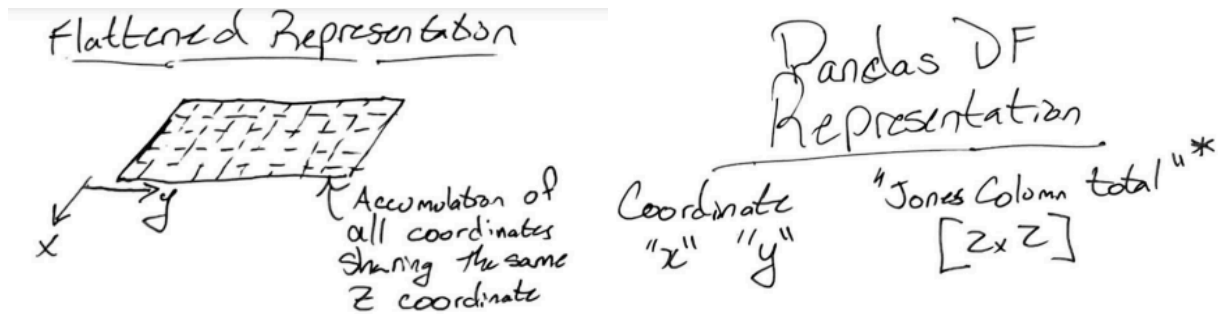 Flattened Representation
x
y
Accumulation of
all coordinates
sharing the same
Z coordinate
Pandas DF
Representation
Coordinate "Jones Column total"*
"x" "y" [2x2]